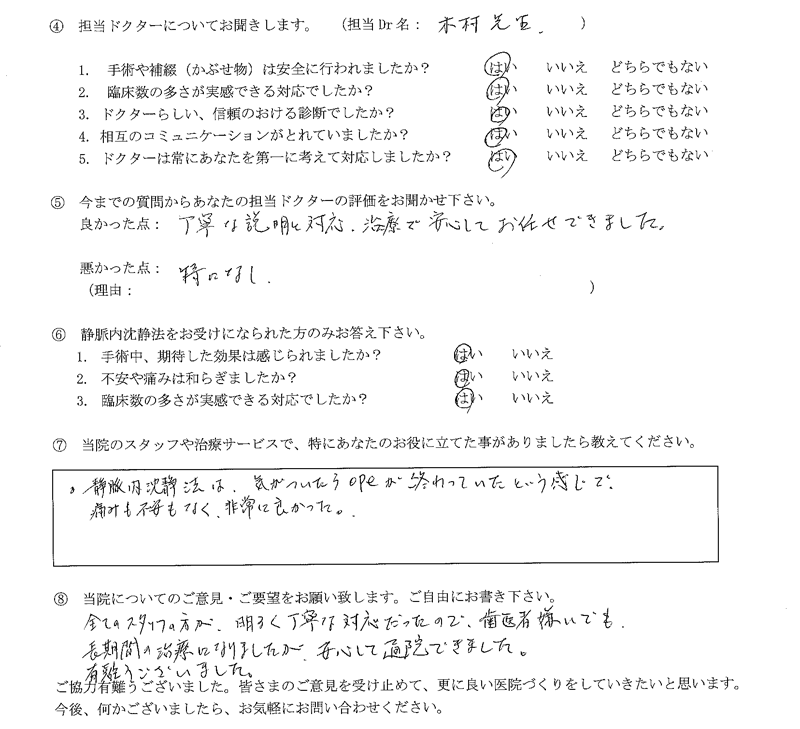 ④ 担当ドクターについてお聞きします。（担当Dr名： 木村先生. ）
1. 手術や補綴（かぶせ物）は安全に行われましたか？ はい いいえ どちらでもない
2. 臨床数の多さが実感できる対応でしたか？ はい いいえ どちらでもない
3. ドクターらしい、信頼のおける診断でしたか？ はい いいえ どちらでもない
4. 相互のコミュニケーションがとれていましたか？ はい いいえ どちらでもない
5. ドクターは常にあなたを第一に考えて対応しましたか？ はい いいえ どちらでもない
⑤ 今までの質問からあなたの担当ドクターの評価をお聞かせ下さい。
良かった点： 丁寧な説明と対応、治療で安心してお任せできました。
悪かった点： 特になし.
（理由： ）
⑥ 静脈内沈静法をお受けになられた方のみお答え下さい。
1. 手術中、期待した効果は感じられましたか？ はい いいえ
2. 不安や痛みは和らぎましたか？ はい いいえ
3. 臨床数の多さが実感できる対応でしたか？ はい いいえ
⑦ 当院のスタッフや治療サービスで、特にあなたのお役に立てた事がありましたら教えてください。
・静脈内沈静法は、気がついたらopeが終わっていたという感じで、
痛みも不安もなく、非常に良かった。
⑧ 当院についてのご意見・ご要望をお願い致します。ご自由にお書き下さい。
全てのスタッフの方が、明るく丁寧な対応だったので、歯医者嫌いでも、
長期間の治療になりましたが、安心して通院できました。
有難うございました。
ご協力有難うございました。皆さまのご意見を受け止めて、更に良い医院づくりをしていきたいと思います。
今後、何かございましたら、お気軽にお問い合わせください。